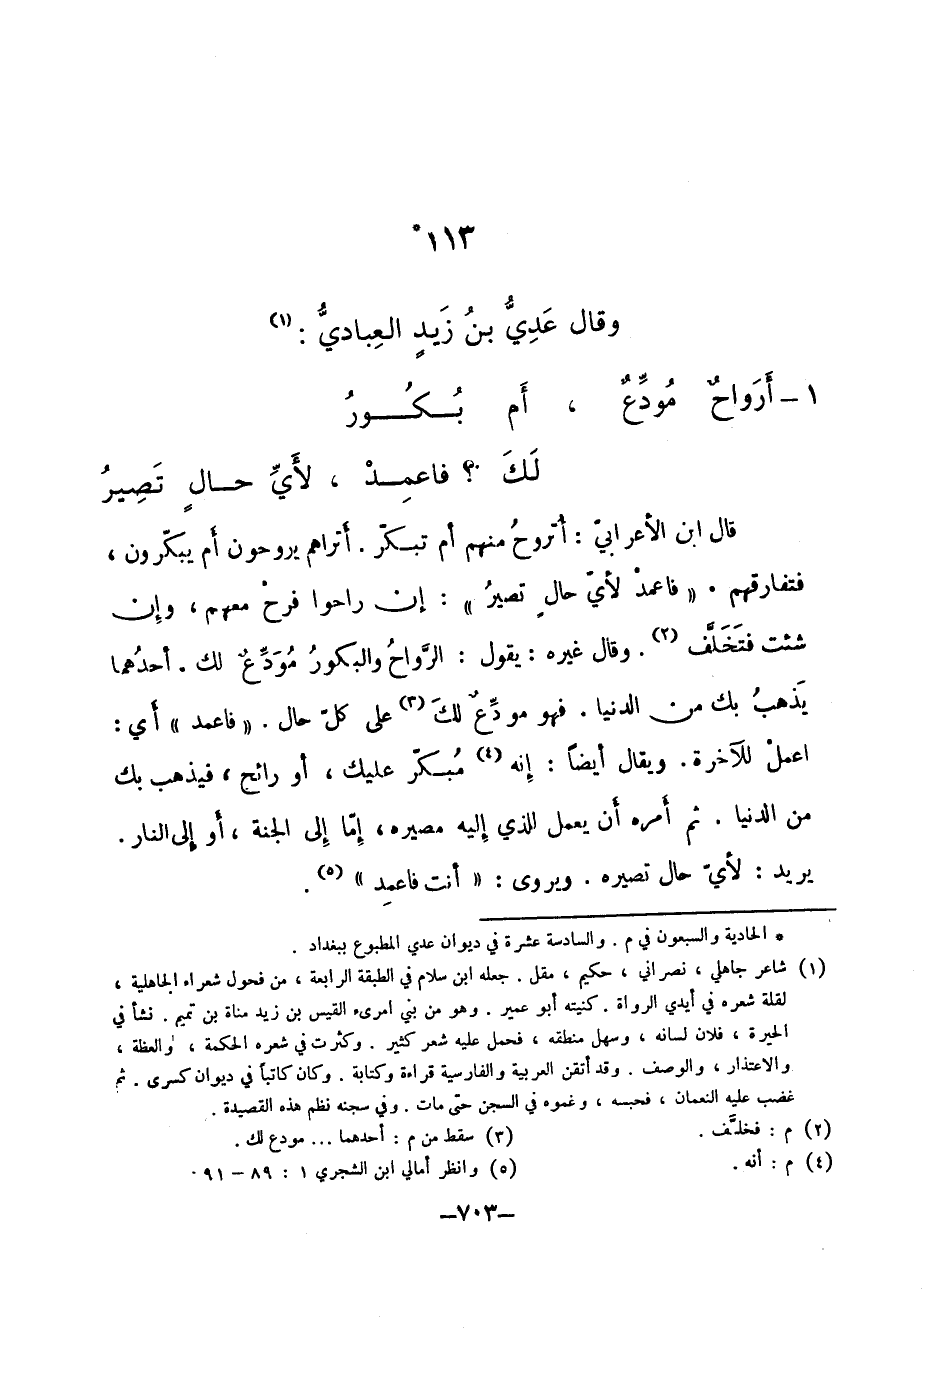 ١١٣*
وقال عَدِيُّ بنُ زَيدٍ العِباديُّ : (١)
١ – أَرَواحٌ مُودِّعٌ ، أَم بُـكُـورُ
لَكَ ؟ فاعمِـدْ ، لأَيِّ حـالٍ تَصِيرُ
قال ابن الأعرابيّ : أتروحُ منهم أم تبـكّر . أتراهم يروحون أم يبكّرون ،
فتفارقهم . « فاعمدْ لأيّ حالٍ تصيرُ » : إن راحوا فرحْ معهم ، وإن
شئت فتَخَلَّف (٢) . وقال غيره : يقول : الرَّواحُ والبكورُ مُوَدِّعٌ لك . أحدُهما
يَذهبُ بك من الدنيا . فهو مودِّعٌ لكَ (٣) على كلّ حال . « فاعمد » أي :
اعملْ للآخرة . ويقال أيضاً : إنه (٤) مُبـكّر عليك ، أو رائح ، فيذهب بك
من الدنيا . ثم أمره أن يعمل للذي إليه مصيره ، إمّا إلى الجنة ، أو إلى النار .
يريد : لأيّ حال تصيره . ويروى : « أنت فاعمِد » (٥) .
* الحادية والسبعون في م . والسادسة عشرة في ديوان عدي المطبوع ببغداد .
(١) شاعر جاهلي ، نصراني ، حكيم ، مقل . جعله ابن سلام في الطبقة الرابعة ، من فحول شعراء الجاهلية ،
لقلة شعره في أيدي الرواة . كنيته أبو عمير . وهو من بني امرىء القيس بن زيد مناة بن تميم . نشأ في
الحيرة ، فلان لسانه ، وسهل منطقه ، فحمل عليه شعر كثير . وكثرت في شعره الحكمة ، والعظة ،
والاعتذار ، والوصف . وقد أتقن العربية والفارسية قراءة وكتابة . وكان كاتباً في ديوان كسرى . ثم
غضب عليه النعمان ، فحبسه ، وغموه في السجن حتى مات . وفي سجنه نظم هذه القصيدة .
(٢) م : فخلَّف . (٣) سقط من م : أحدهما ... مودع لك .
(٤) م : أنه . (٥) وانظر أمالي ابن الشجري ١ : ٨٩ – ٩١ .
–٧٠٣–